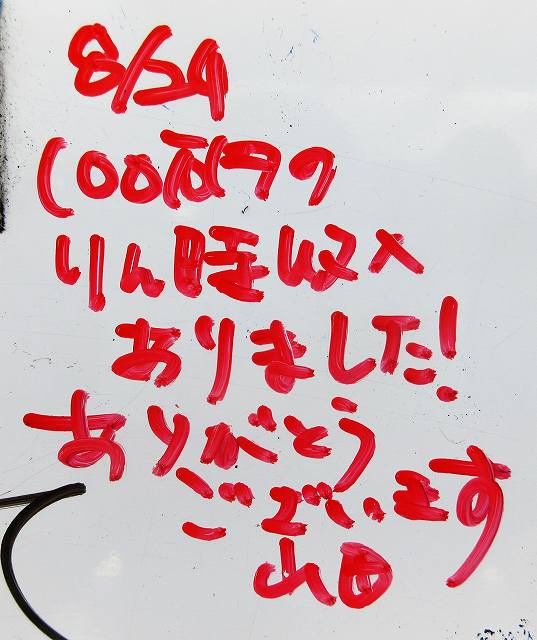 8/29
100万円の
りん時収入
ありました!
ありがとう
ございます
山田